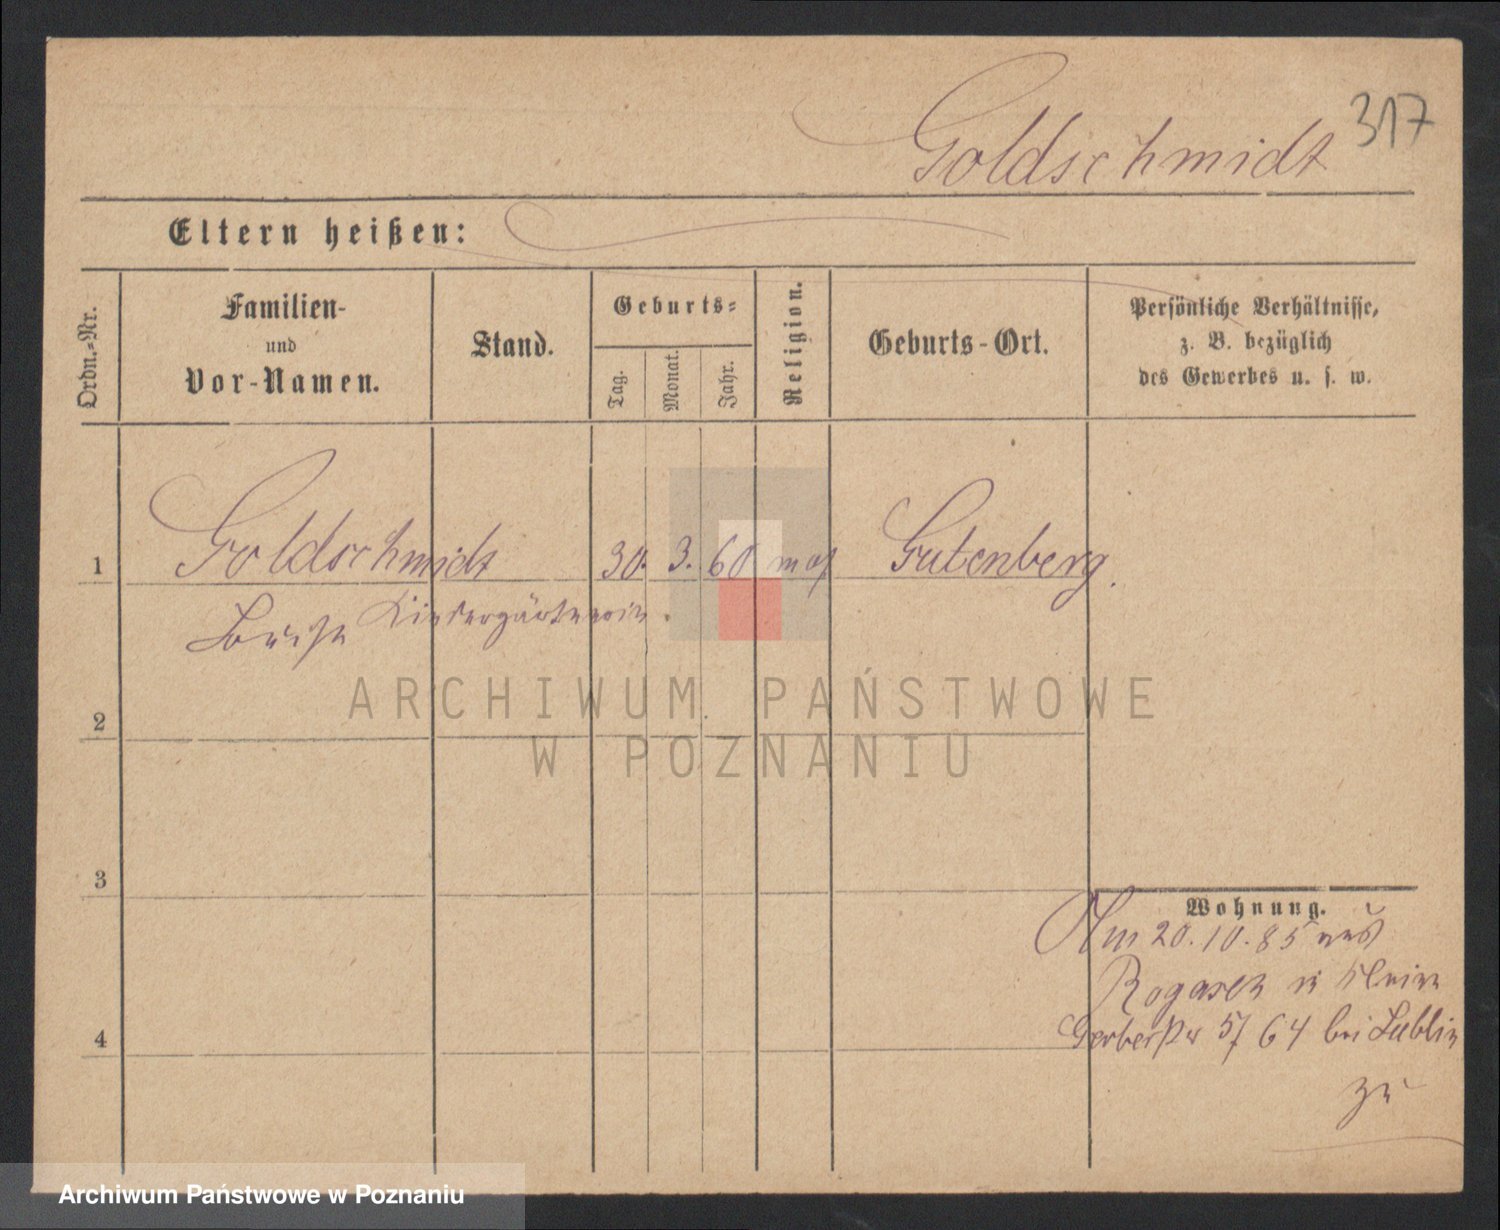 317
Goldschmidt
Eltern heißen:
Ordn.-Nr.
Familien-
und
Vor-Namen.
Stand.
Geburts-
Tag.
Monat.
Jahr.
Religion.
Geburts-Ort.
Persönliche Verhältnisse,
z. B. bezüglich
des Gewerbes u. s. w.
1 Goldschmidt 30. 3. 60 mos Gutenberg.
Louise Kindergärtnerin.
2
3
4
Wohnung.
Am 20.10.85 aus
Rogasen in Klein
Gerberstr 5/64 bei Lublin
zu
ARCHIWUM PAŃSTWOWE
W POZNANIU
Archiwum Państwowe w Poznaniu